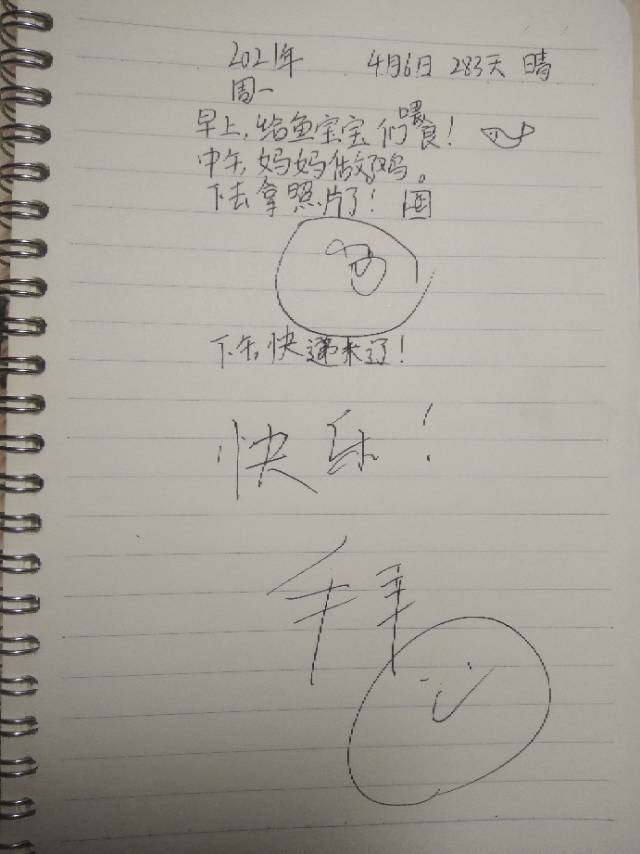 2021年 4月6日 283天 晴
周一
早上,给鱼宝宝们喂食!
中午,妈妈做好鸡。
下去拿照片了!
下午,快递来了!
快乐!